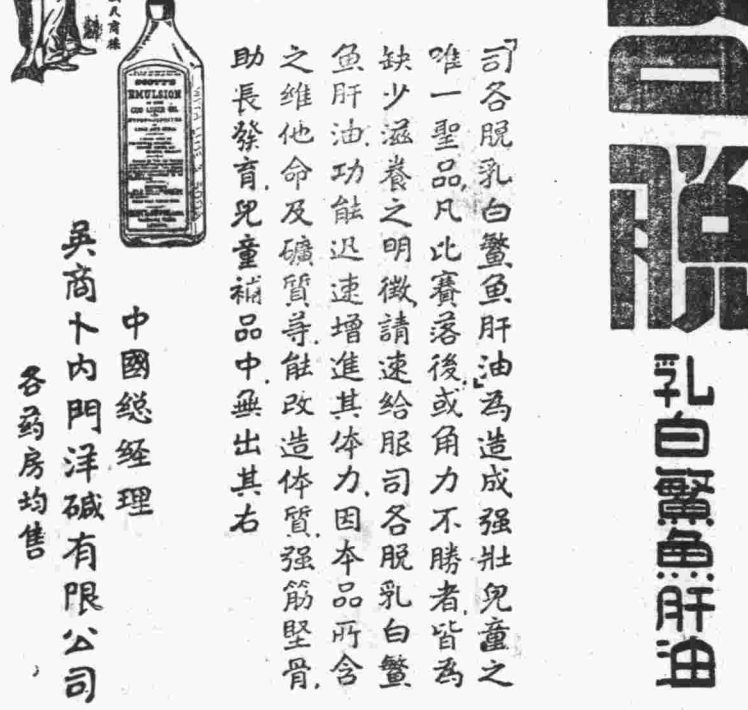 脫
乳白鱉魚肝油
「司各脫乳白鱉魚肝油」為造成强壯兒童之
唯一聖品,凡比賽落後,或角力不勝者,皆為
缺少滋養之明徵,請速給服司各脫乳白鱉
魚肝油,功能迅速增進其体力,因本品所含
之維他命及礦質等,能改造体質,强筋堅骨,
助長發育,兒童補品中,無出其右
人商標
SCOTT'S
EMULSION
COD LIVER OIL
中國総経理
英商卜内門洋碱有限公司
各药房均售